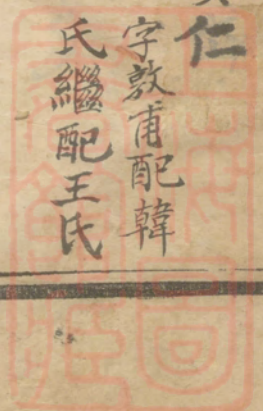 仁
字敦甫配韓
氏繼配王氏